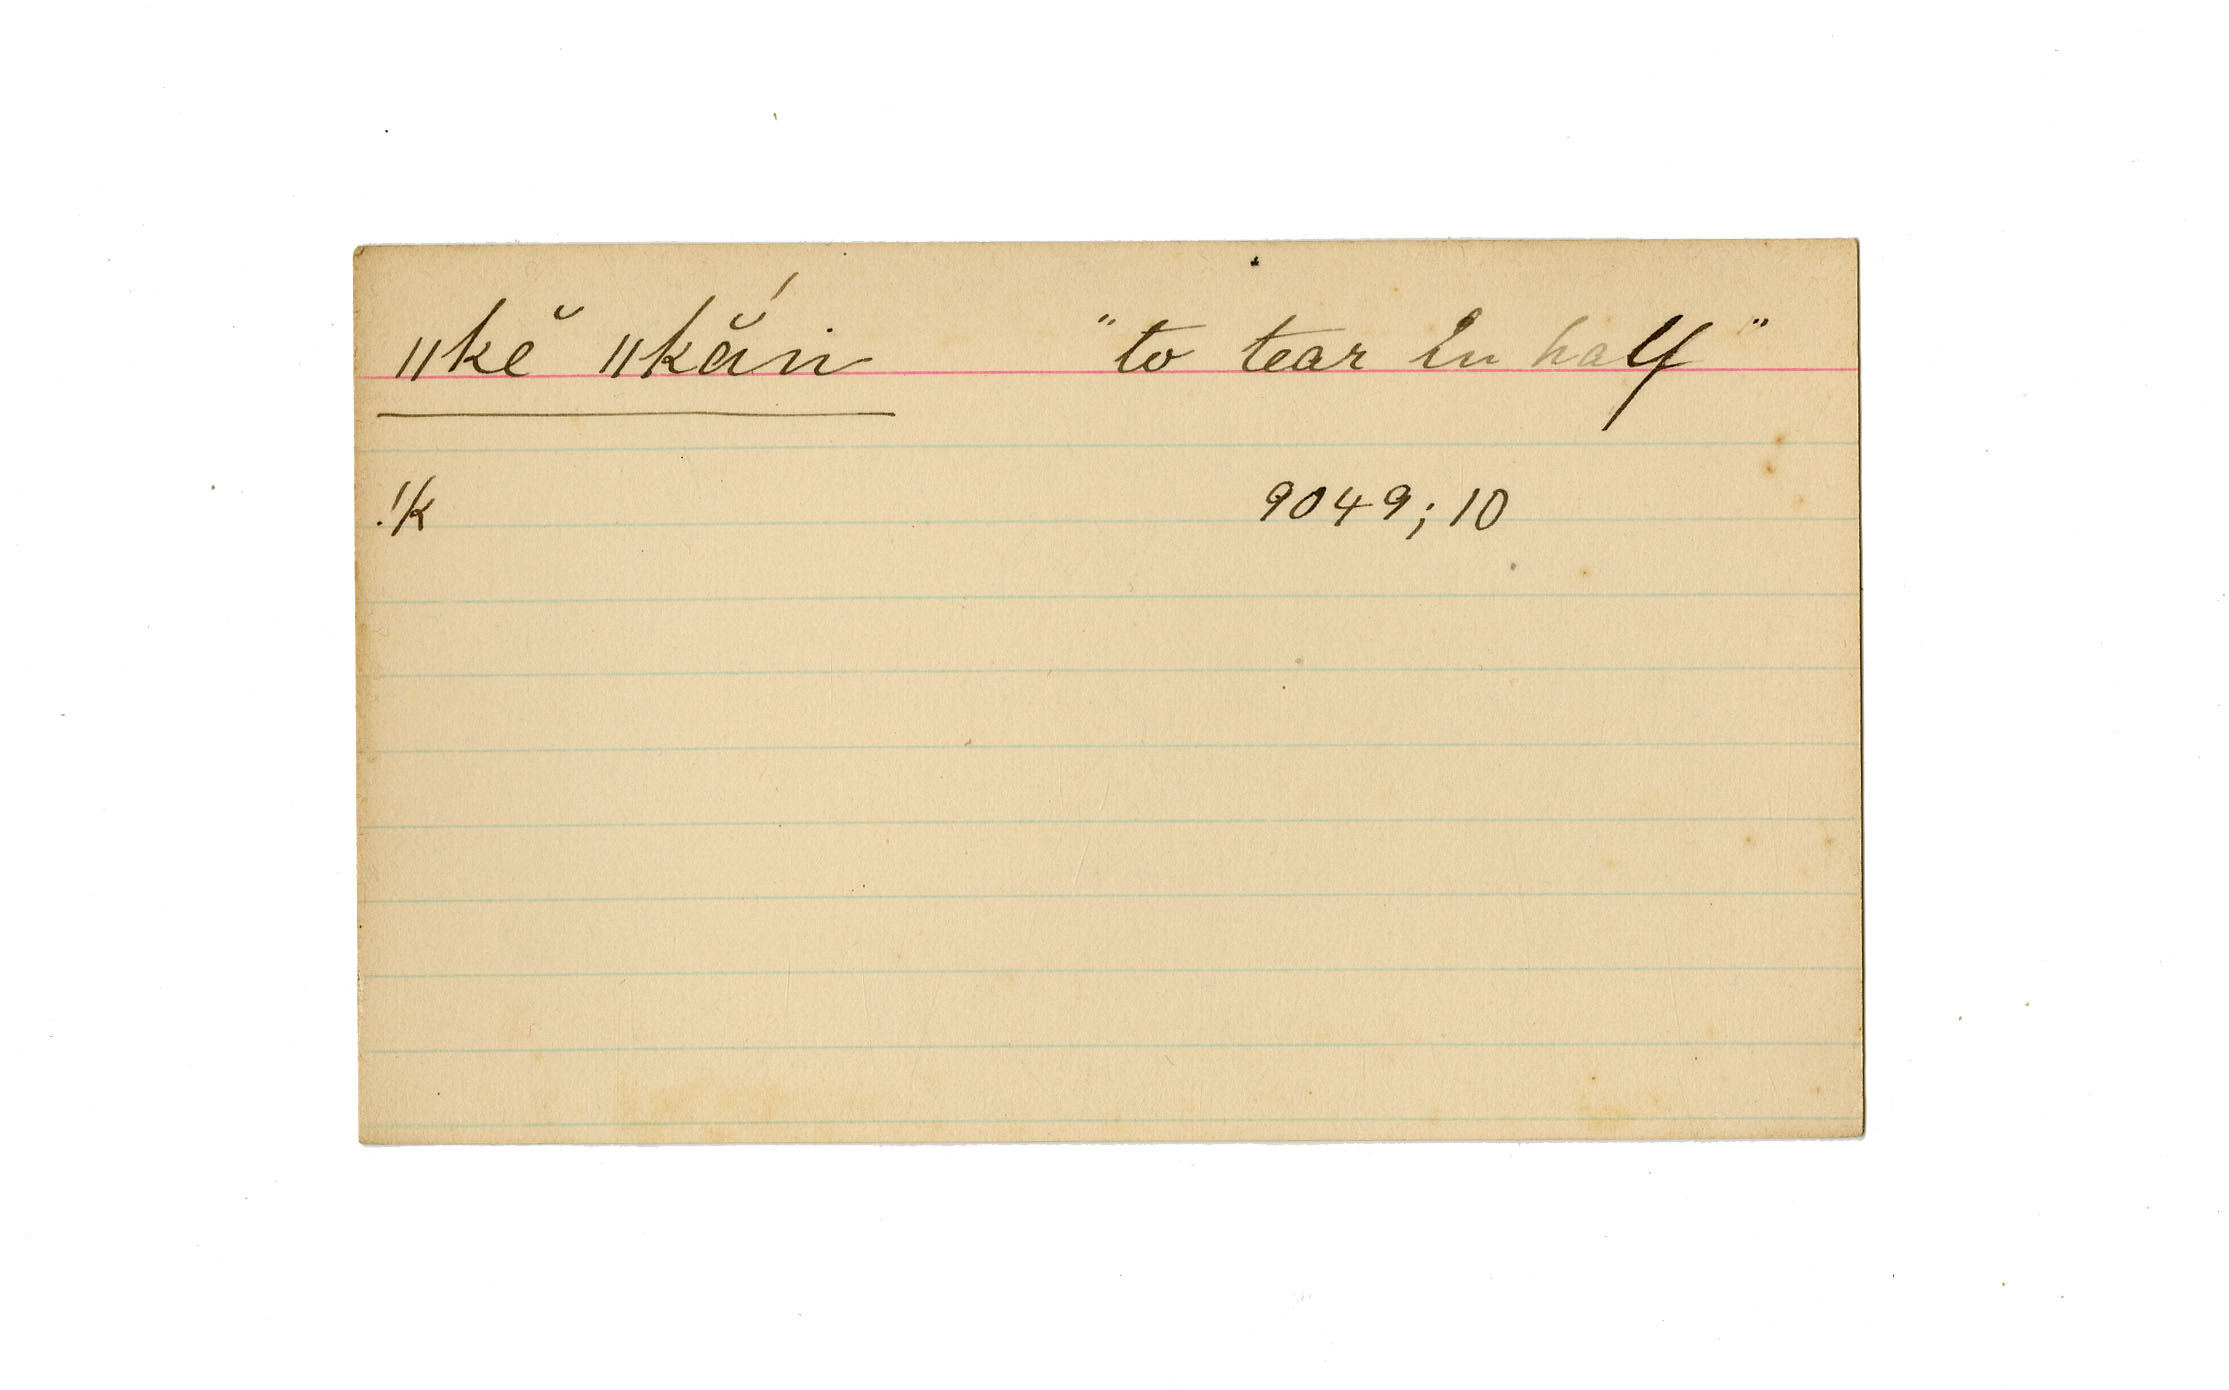 ǁkĕ ǁkắn "to tear in half"
!k 9049; 10